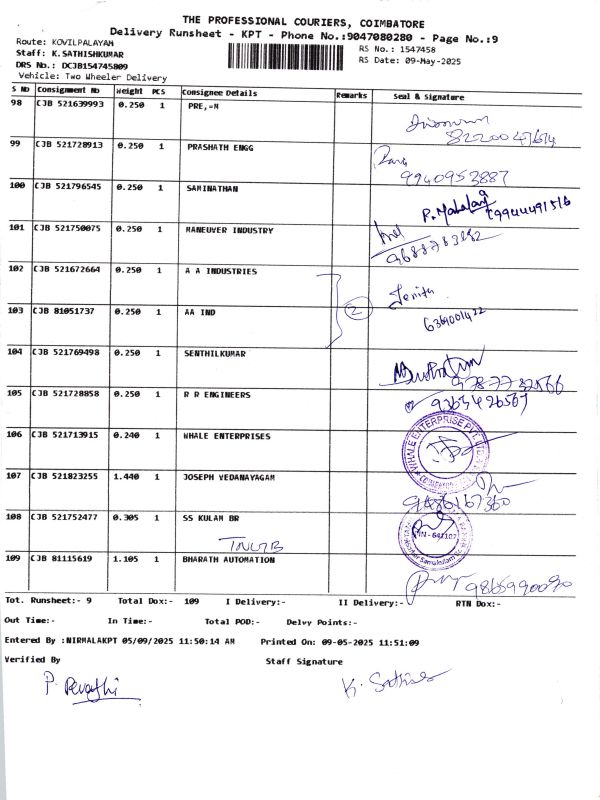 THE PROFESSIONAL COURIERS, COIMBATORE
Delivery Runsheet - KPT - Phone No.:9047080280 - Page No.:9
Route: KOVILPALAYAM
Staff: K.SATHISHKUMAR
DRS No.: DCJB154745809
Vehicle: Two Wheeler Delivery
RS No.: 1547458
RS Date: 09-May-2025
S No Consignment No Weight PCS Consignee Details Remarks Seal & Signature
98 CJB 521639993 0.250 1 PRE,=M
99 CJB 521728913 0.250 1 PRASHATH ENGG
9940953887
100 CJB 521796545 0.250 1 SAMINATHAN
P. Mahalaxmi
9944491516
101 CJB 521750075 0.250 1 MANEUVER INDUSTRY
102 CJB 521672664 0.250 1 A A INDUSTRIES
2
103 CJB 81051737 0.250 1 AA IND
104 CJB 521769498 0.250 1 SENTHILKUMAR
105 CJB 521728858 0.250 1 R R ENGINEERS
9363426567
106 CJB 521713915 0.240 1 WHALE ENTERPRISES
WHALE ENTERPRISE PVT LTD
107 CJB 521823255 1.440 1 JOSEPH VEDANAYAGAM
108 CJB 521752477 0.305 1 SS KULAM BR
PIN - 641107
109 CJB 81115619 1.105 1 BHARATH AUTOMATION
9865990090
Tot. Runsheet:- 9 Total Dox:- 109 I Delivery:- II Delivery:- RTN Dox:-
Out Time:- In Time:- Total POD:- Delvy Points:-
Entered By :NIRMALAKPT 05/09/2025 11:50:14 AM Printed On: 09-05-2025 11:51:09
Verified By Staff Signature
P. Revathi
K. Sathish